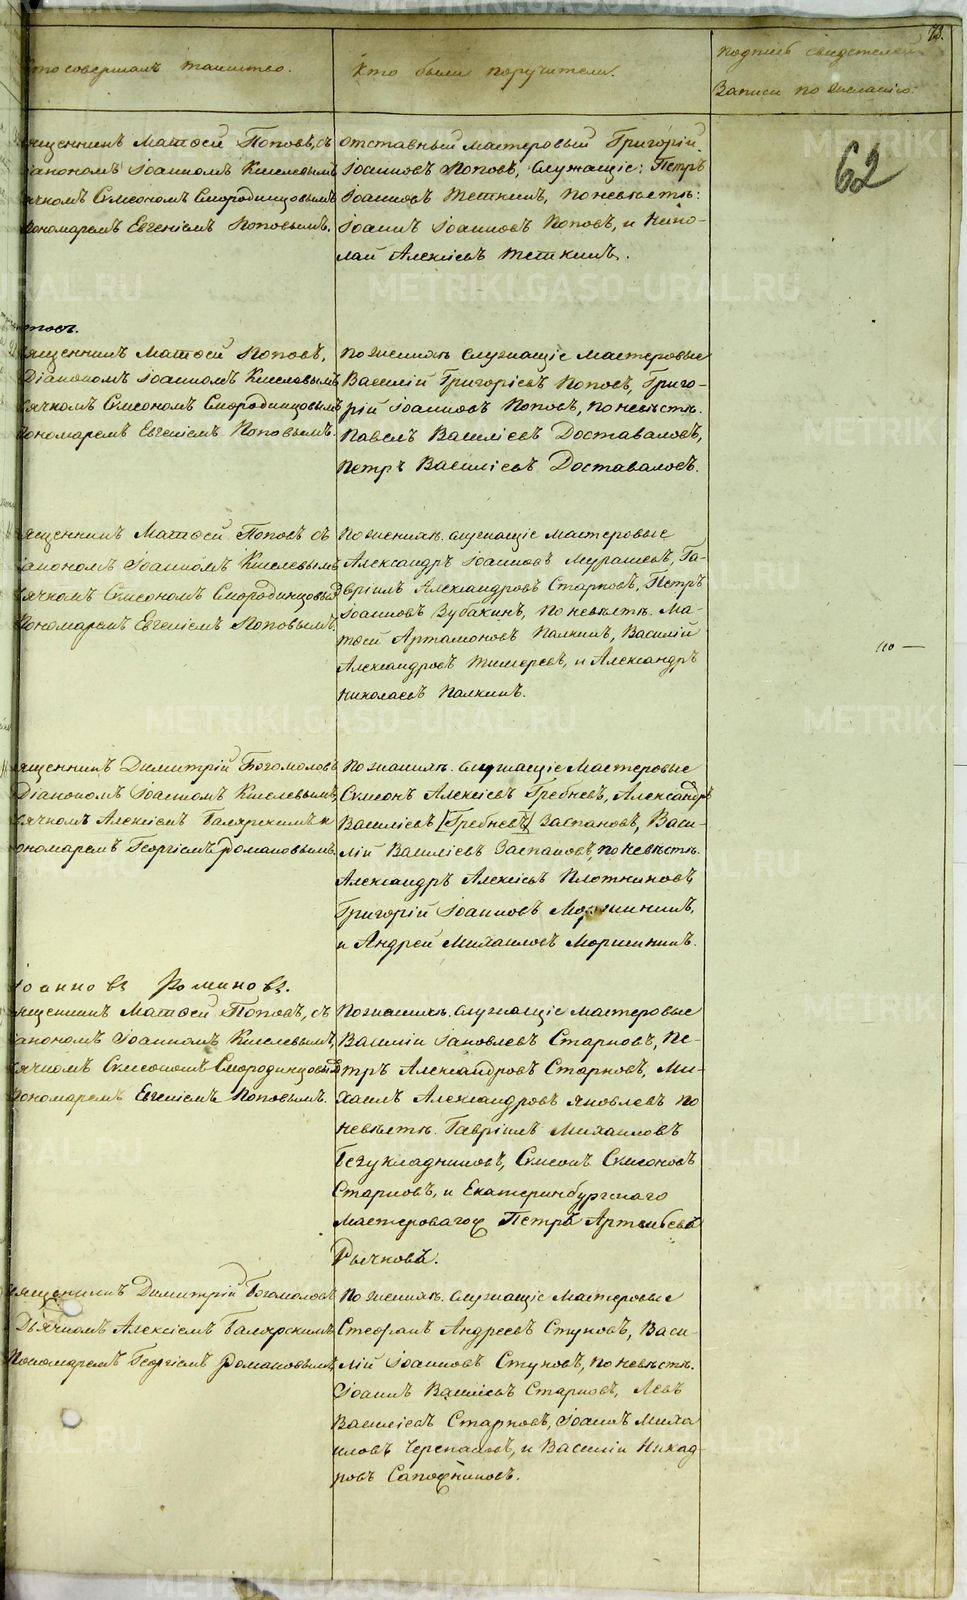 73.
то совершалъ таинство.
Кто были поручители.
Подпись свидетелей
Записи по желанію.
62
щенникъ Матѳей Поповъ, съ
іакономъ Іоанномъ Киселевымъ
ячкомъ Симеономъ Смородинцовымъ
ономаремъ Евгеніемъ Поповымъ.
Отставный мастеровый Григорій
Іоанновъ Поповъ, служащіе: Петръ
Іоанновъ Теткинъ, по невѣстѣ:
Іоаннъ Іоанновъ Поповъ, и Нико-
лай Алексіевъ Теткинъ.
ященникъ Матѳей Поповъ,
Діакономъ Іоанномъ Киселевымъ
ячкомъ Симеономъ Смородинцовымъ
ономаремъ Евгеніемъ Поповымъ.
По женихѣ служащіе мастеровые
Василій Григоріевъ Поповъ, Григо-
рій Іоанновъ Поповъ, по невѣстѣ.
Павелъ Василіевъ Доставаловъ,
Петръ Василіевъ Доставаловъ.
ященникъ Матѳей Поповъ съ
іакономъ Іоанномъ Киселевымъ
ячкомъ Симеономъ Смородинцовым
ономаремъ Евгеніемъ Поповымъ.
По женихѣ. служащіе мастеровые
Александръ Іоанновъ Мурашевъ, Га-
вріилъ Александровъ Старковъ, Петръ
Іоанновъ Зубакинъ, по невѣстѣ. Ма-
тѳей Артамоновъ Палкинъ, Василій
Александровъ и Александръ
Николаевъ Палкинъ.
110 —
ященникъ Димитрій Богомоловъ
Діакономъ Іоанномъ Киселевымъ,
ячкомъ Алексіемъ Балярскимъ и
ономаремъ Георгіемъ Романовымъ.
По женихѣ. служащіе Мастеровые
Симеонъ Алексіевъ Гребневъ, Александръ
Василіевъ [Гребневъ] Заспановъ, Васи-
лій Василіевъ Заспановъ, по невѣстѣ.
Александръ Алексіевъ Плотниковъ
Григорій Іоанновъ
и Андрей Михаиловъ
Іоанновъ Романовъ.
ященникъ Матѳей Поповъ, съ
іакономъ Іоанномъ Киселевымъ,
ячкомъ Симеономъ Смородинцовым
ономаремъ Евгеніемъ Поповымъ.
По женихѣ. служащіе мастеровые
Василій Іаковлевъ Старковъ, Пе-
тръ Александровъ Старковъ, Ми-
хаилъ Александровъ Яковлевъ по
невѣстѣ. Гавріилъ Михаиловъ
Безукладниковъ, Симеонъ Симеоновъ
Старковъ, и Екатеринбургскаго
мастероваго Петръ
Рычковъ.
ященникъ Димитрій Богомоловъ
Дьячкомъ Алексіемъ Балярскимъ
Пономаремъ Георгіемъ Романовымъ
По женихѣ. служащіе Мастеровые
Стефанъ Андреевъ Стуковъ, Васи-
лій Іоанновъ Стуковъ, по невѣстѣ.
Іоаннъ Василіевъ Старковъ, Левъ
Василіевъ Старковъ, Іоаннъ Миха
иловъ Черепановъ, и Василій Никад-
ровъ Сапожниковъ.
METRIKI.GASO-URAL.RU